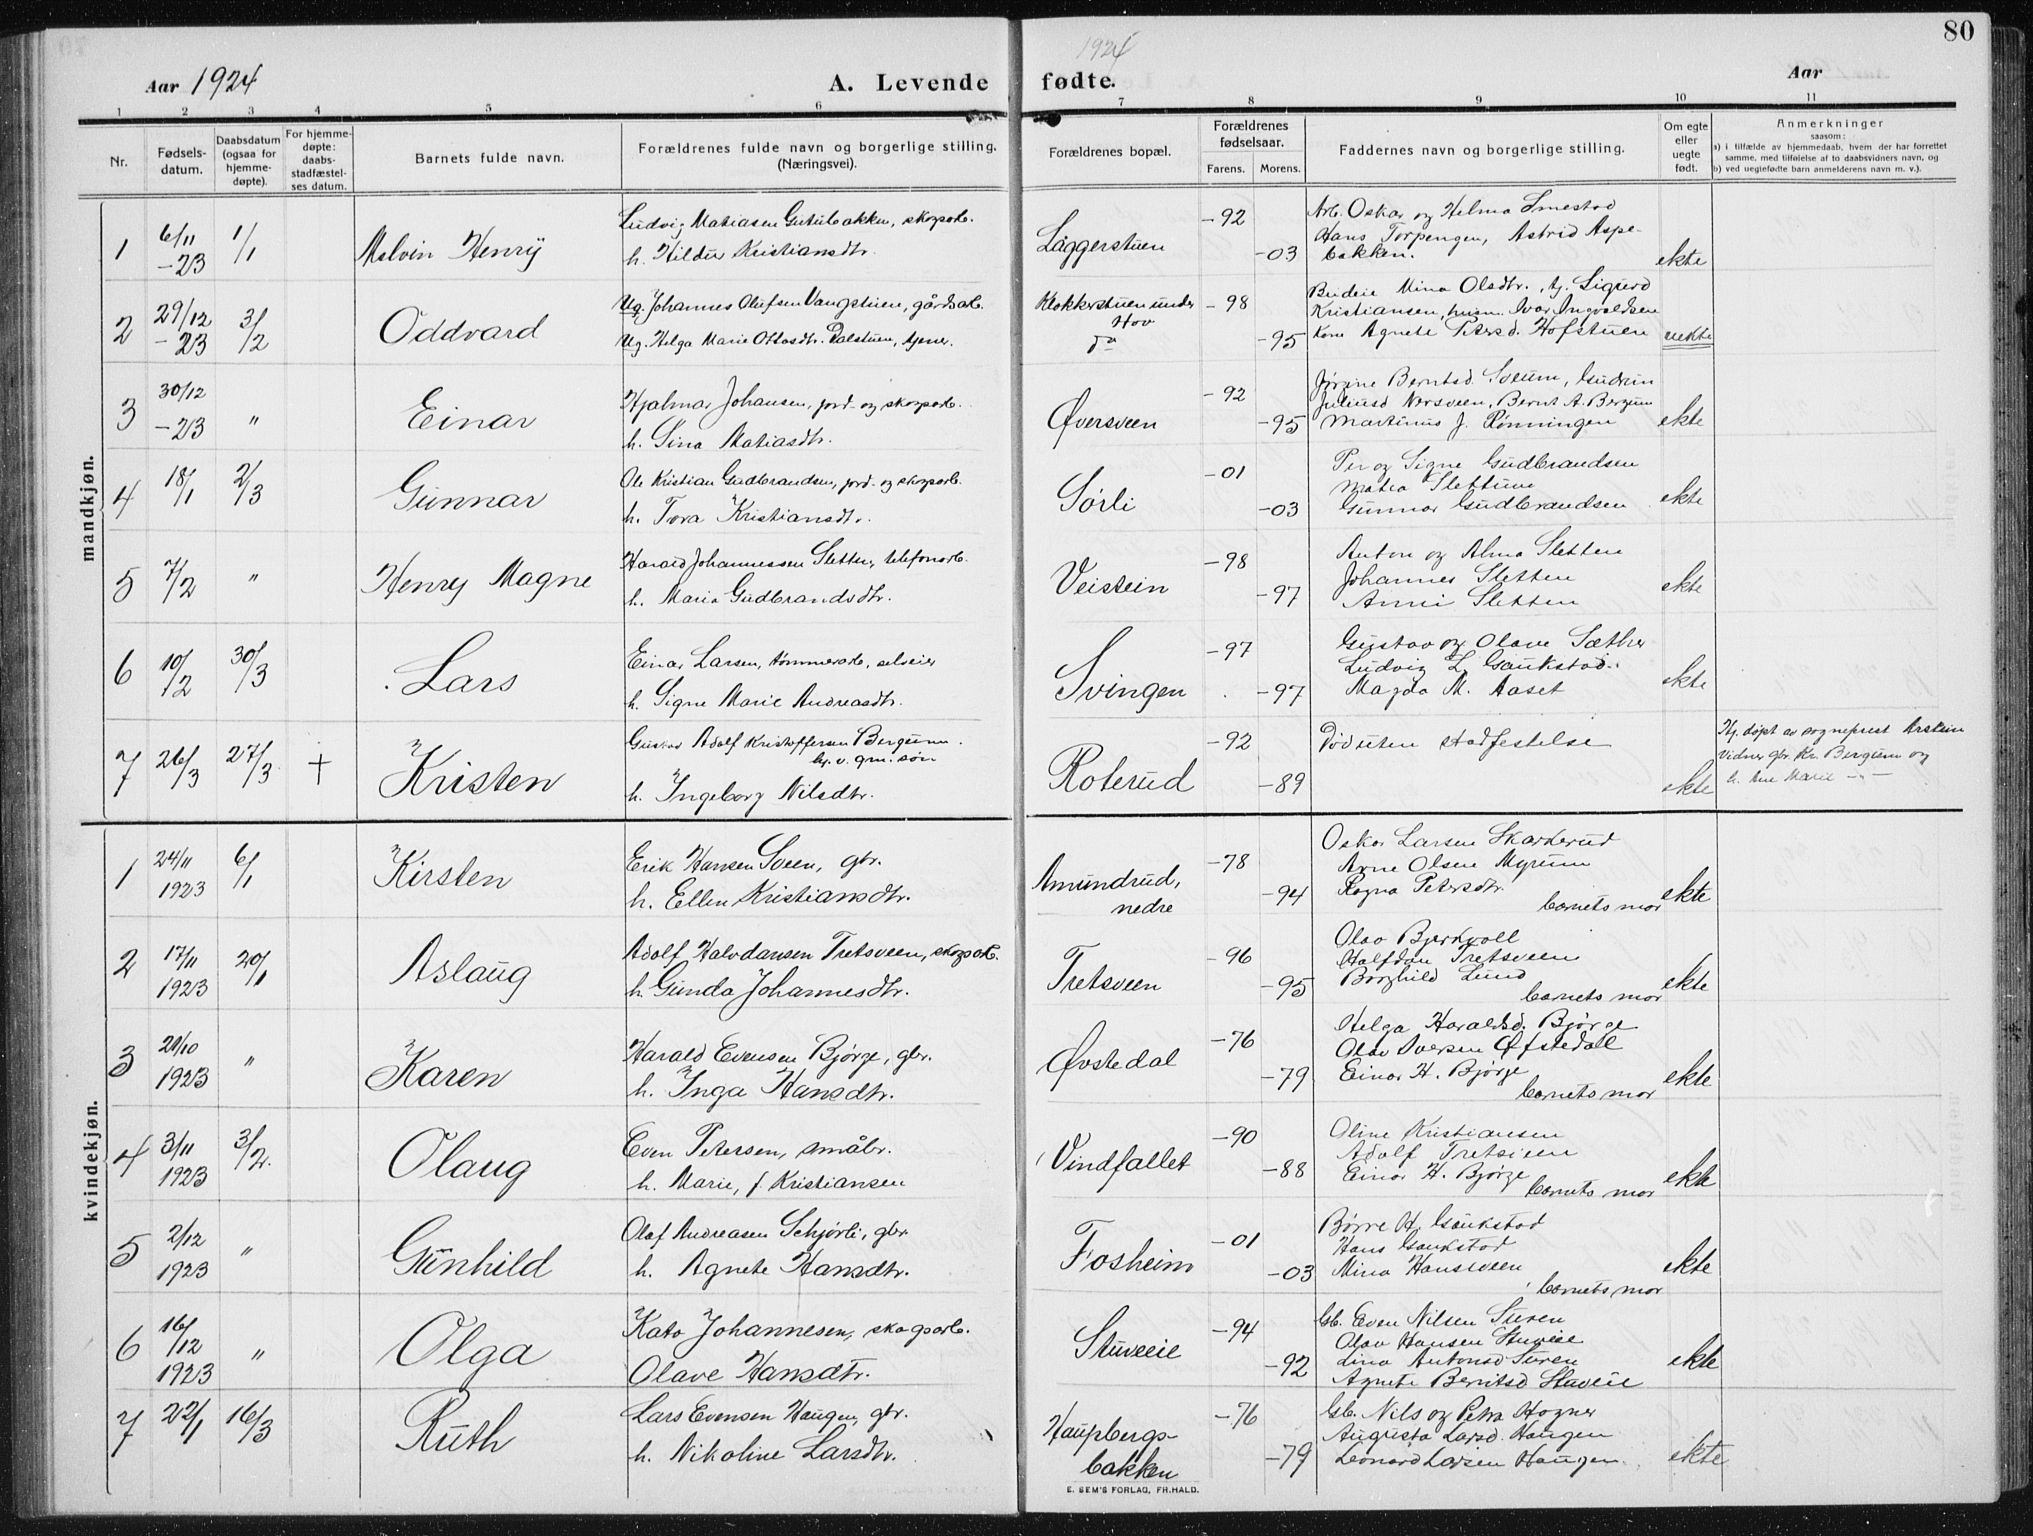 80
1924
Aar 1924
A. Levende fødte.
Aar
1 2 3 4 5 6 7 8 9 10 11
Nr.
Fødsels-
datum.
Daabsdatum
(ogsaa for
hjemme-
døpte).
For hjemme-
døpte:
daabs-
stadfæstel-
ses datum.
Barnets fulde navn.
Forældrenes fulde navn og borgerlige stilling.
(Næringsvei).
Forældrenes bopæl.
Forældrenes
fødselsaar.
Farens. Morens.
Faddernes navn og borgerlige stilling.
Om egte
eller
uegte
født.
Anmerkninger
saasom:
a) i tilfælde av hjemmedaab, hvem der har forrettet
samme, med tilføielse af to daabsvidners navn, og
b) ved uegtefødte barn anmelderens navn m. v.).
mandkjøn.
1 6/11 -23 1/1 Malvin Henry
Ludvig Matiasen Gutubakken, skogsarb.
h. Hildur Kristiansdtr.
Läggerstuen -92 -03
Arb. Oskar og Helma Smestad
Hans Torpengen, Astrid Aspe-
bakken.
ekte
2 29/12 -23 3/2 Oddvard
Ug. Johannes Olufsen Vangstuen, gårdsarb.
Ug. Helga Marie Ottosdtr. Dalstuen, tjener.
Klokkerstuen under
Hov
do
-98 -95
Budeie Mina Olsdtr., tj. Sigurd
Kristiansen, husm. Ivar Ingvaldsen
Kone Agnete Petersd. Hofstuen
uekte
3 30/12 -23 " Einar
Hjalmar Johansen, jord- og skogsarb.
h. Sina Matiasdtr.
Øversveen -92 -95
Jørgine Berntsd. Sveum, Gudrun
Juliusd Nersveen, Bernt A. Bergum
Martinus J. Rønningen
ekte
4 18/1 2/3 Gunnar
Ole Kristian Gudbrandsen, jord- og skogsarb.
h. Tora Kristiansdtr.
Sørli -01 -03
Per og Signe Gudbrandsen
Gunnar Gudbrandsen
ekte
5 7/2 " Henry Magne
Harald Johannessen Sletten, telefonarb.
h. Maria Gudbrandsdtr.
Veistein -98 -97
Anton og Alma Sletten
Johannes Sletten
Anni Sletten
ekte
6 10/2 30/3 Lars
Einar Larsen, tømmerarb, selveier
h. Signe Marie Andreasdtr.
Svingen -97 -97
Gustav og Olave Sæther
Ludvig L. Gaukstad.
Magda M. Aaset
ekte
7 26/3 27/3 † Kristen
Gustav Adolf Kristoffersen Bergum.
br. v. gm. søn
h. Ingeborg Nilsdtr.
Roterud -92 -89
Død uten stadfestelse
ekte
Hj. døpt av sogneprest Arstein
Vidner gbr. Kr. Bergum og
h. Ane Marie -"-
kvindekjøn.
1 24/11 1923 6/1 Kirsten
Erik Hansen Sveen, gbr.
h. Ellen Kristiansdtr.
Amundrud,
nedre
-78 -94
Oskar Larsen Skarderud
Arne Olsen Myrum
Ragna Petersdtr.
barnets mor
ekte
2 17/11 1923 20/1 Aslaug
Adolf Halvdansen Tretsveen, skogsarb.
h. Gunda Johannesdtr.
Tretsveen -96 -95
Olav Bjerkvoll
Halfdan Tretsveen
Borghild Lund
barnets mor
ekte
3 21/10 1923 " Karen
Harald Evensen Bjørge, gbr.
h. Inga Hansdtr.
Øvstedal -76 -79
Helga Haraldsd. Bjørge
Olav Iversen Øfstedall
Einar H. Bjørge
barnets mor
ekte
4 3/11 1923 3/2. Olaug
Even Petersen, småbr.
h. Marie, f. Kristiansen
Vindfallet -90 -88
Oline Kristiansen
Adolf Tretsveen
Einar H. Bjørge
barnets mor
ekte
5 2/12 1923 " Gunhild
Olaf Andreasen Schjørli, gbr.
h. Agnete Hansdtr.
Fosheim -01 -03
Børre H. Gaukstad
Hans Gaukstad
Mina Hansveen
barnets mor
ekte
6 16/12 1923 " Olga
Kato Johannesen, skogsarb.
Olave Hansdtr.
Stuveie -94 -92
Gb. Even Nilsen Suren
Olav Hansen Stuveie
Lina Antonsd Suren
Agnete Berntsd Stuveie
ekte
7 22/1 16/3 Ruth
Lars Evensen Haugen, gbr.
h. Nikoline Larsdtr.
Haupbergs-
bakken
-76 -79
Gb. Nils og Petra Hogner
Augusta Larsd. Haugen
Leonard Larsen Haugen
ekte
E. SEM'S FORLAG, FR.HALD.